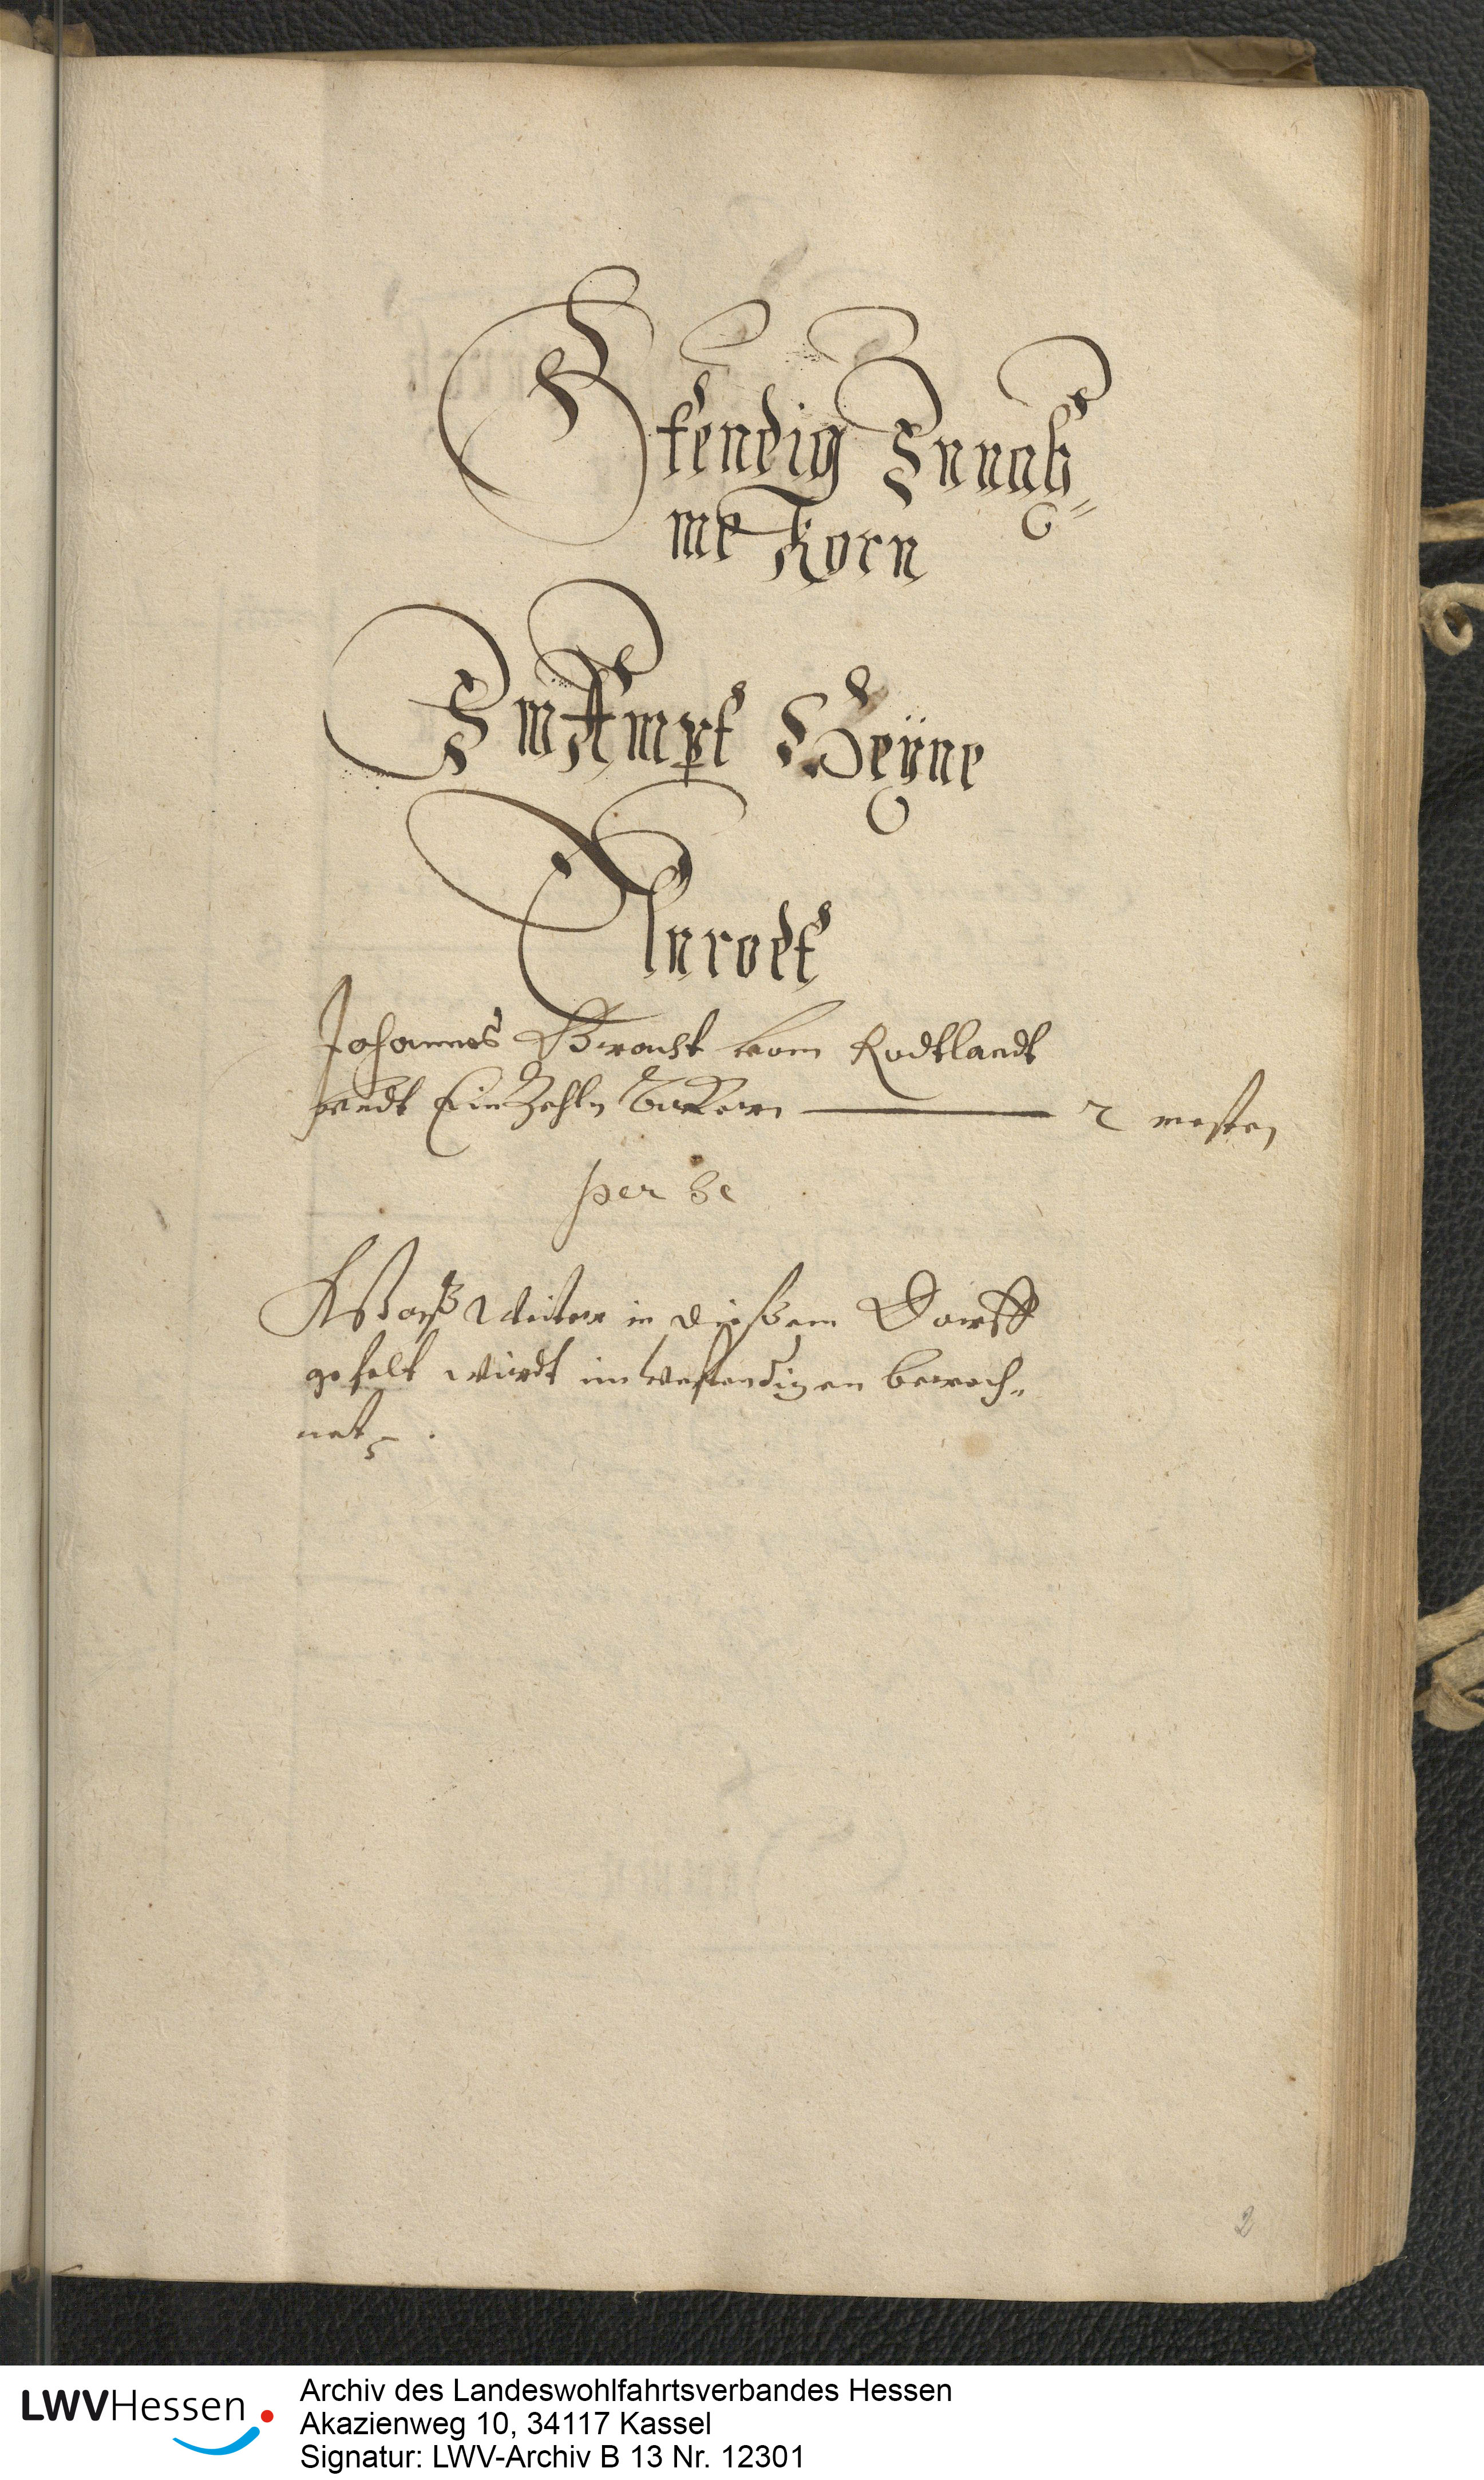 Stendig Innah=
me Korn
Im Ampt Heyne
Linrodt
Johannes Bracht vom Rodtlandt
undt 2 mesten
per se
Waß Weiter in dießem Dorff
gefelt wirdt im Vnstendigen berech=
net.
2
LWVHessen
Archiv des Landeswohlfahrtsverbandes Hessen
Akazienweg 10, 34117 Kassel
Signatur: LWV-Archiv B 13 Nr. 12301